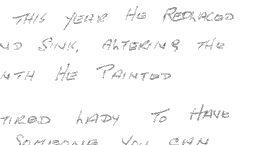 THIS YEAR HE REPLACED
ND SINK, ALTERING THE
NTH HE PAINTED
TIRED LADY TO HAVE
SOMEONE YOU CAN